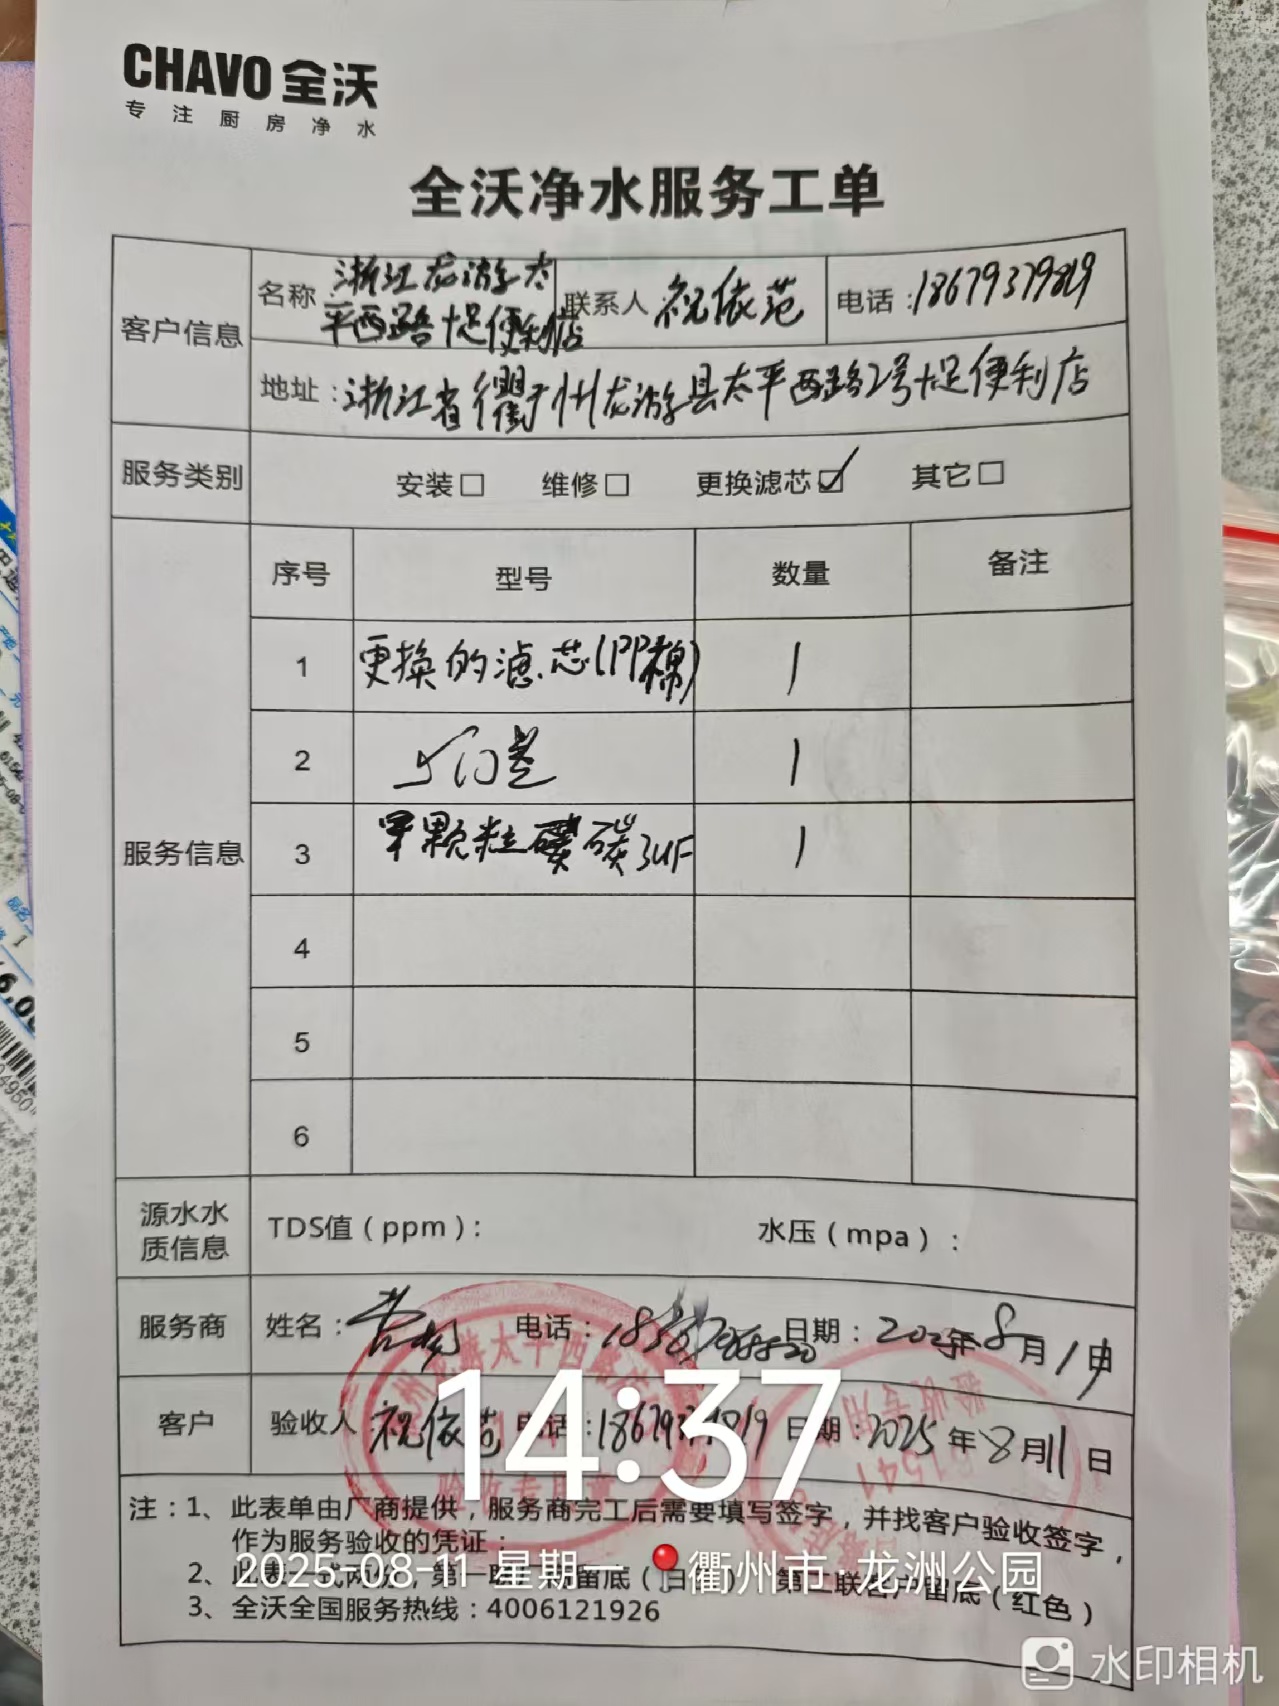 CHAVO 全沃
专注厨房净水
全沃净水服务工单
客户信息
名称 浙江龙游太
平西路十足便利店
联系人 祝依范
电话：18679379819
地址：浙江省衢州龙游县太平西路2号十足便利店
服务类别 安装□ 维修□ 更换滤芯☑ 其它□
服务信息
序号 型号 数量 备注
1 更换的滤芯(PP棉) 1
2 1
3 颗粒 碳 UF 1
4
5
6
源水水
质信息
TDS值（ppm）： 水压（mpa）：
服务商 姓名： 电话： 日期：2025年8月11日
客户 验收人 祝依范 电话：18679379819 日期：2025年8月11日
14:37
注：1、此表单由厂商提供，服务商完工后需要填写签字，并找客户验收签字，
作为服务验收的凭证；
2025-08-11 星期一 衢州市·龙洲公园
3、全沃全国服务热线：4006121926
水印相机